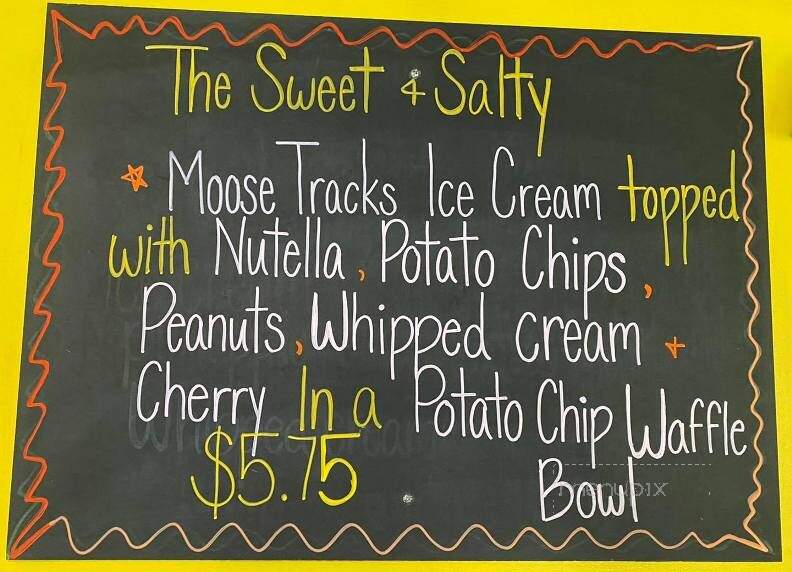 The Sweet & Salty
Moose Tracks Ice Cream topped
with Nutella, Potato Chips,
Peanuts, Whipped cream +
Cherry In a Potato Chip Waffle
$5.75 Bowl
menupix